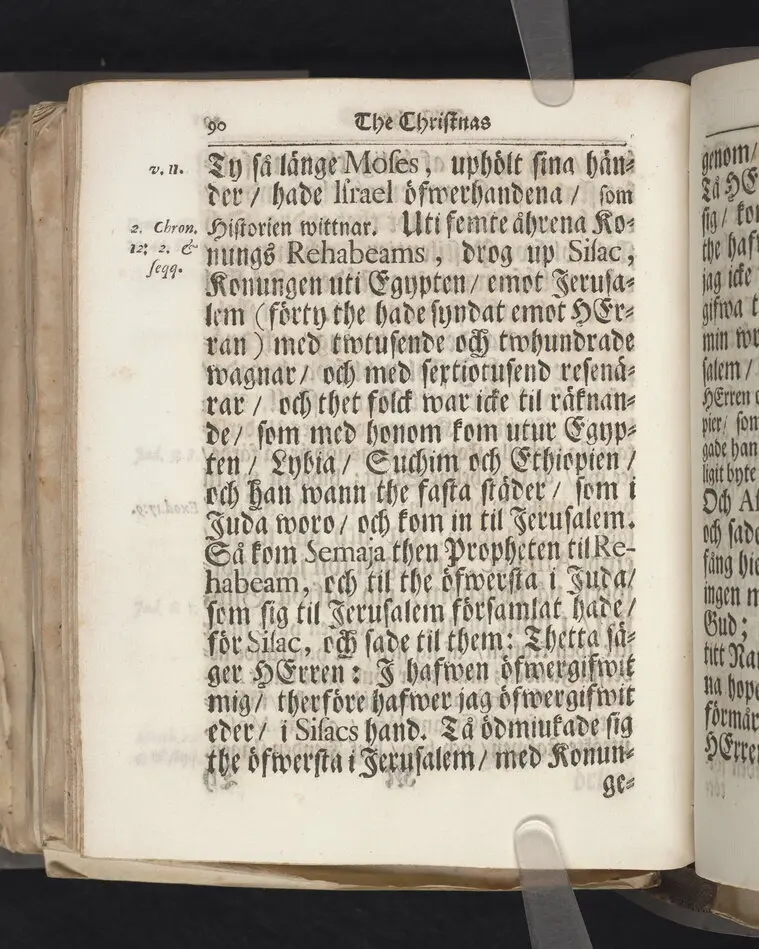 90
The Christnas
v. 11.
Ty så länge Moses, uphölt sina hän-
der / hade Israel öfwerhandena / som
2. Chron.
12: 2. &
seqq.
Historien wittnar. Uti femte åhrena Ko-
nungs Rehabeams, drog up Sisac,
Konungen uti Egypten / emot Jerusa-
lem (förty the hade syndat emot HEr-
ran) med twtusende och twhundrade
wagnar / och med sextiotusend resenä-
rar / och thet folck war icke til räknan-
de / som med honom kom utur Egyp-
ten / Lybia / Suchim och Ethiopien /
och han wann the fasta städer / som i
Juda woro / och kom in til Jerusalem.
Så kom Semaja then Propheten til Re-
habeam, och til the öfwersta i Juda /
som sig til Jerusalem församlat hade /
för Sisac, och sade til them: Thetta sä-
ger HErren: I hafwen öfwergifwit
mig / therföre hafwer jag öfwergifwit
eder / i Sisacs hand. Tå ödmiukade sig
the öfwersta i Jerusalem / med Konun-
ge-
genom /
Tå HE
sig / kom
the haf
jag icke
gifwa t
min wr
salem /
HErren
pier / som
gade han
ligit byte
Och As
och sade
fång hie
ingen m
Gud;
titt Na
na hop
förmår
HErren